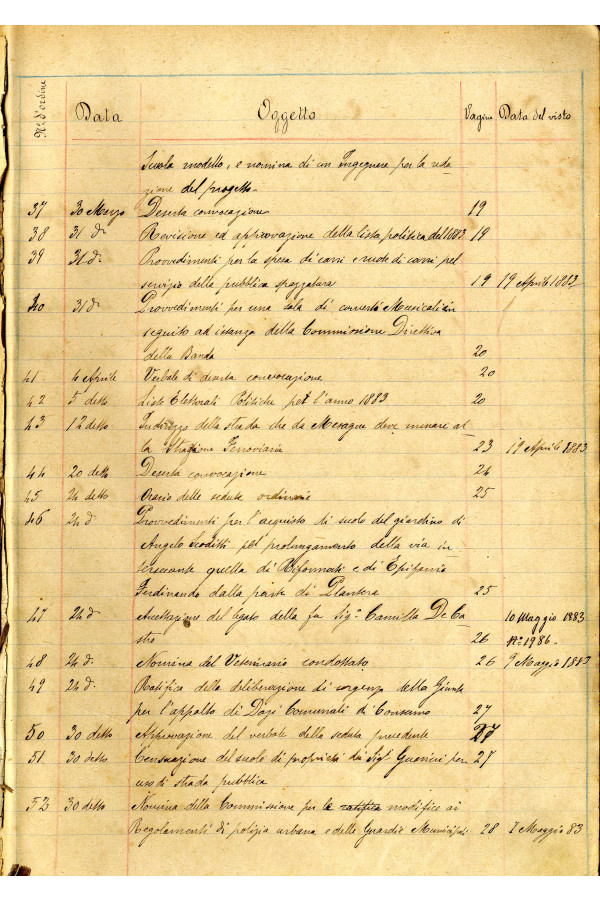 N.° d'ordine Data Oggetto Pagina Data del visto
Scuola modello, e nomina di un Ingegnere per la reda
zione del progetto
37 30 Marzo Deserta convocazione 19
38 31 d.° Revisione ed approvazione della lista politica del 1883 19
39 31 d.° Provvedimenti per la spesa di carri e ruote di carri pel
servizio della pubblica spazzatura 19 19 Aprile 1883
40 31 d.° Provvedimenti per una sala di concerti Musicali in
seguito ad istanza della Commissione Direttiva
della Banda 20
41 4 Aprile Verbale di deserta convocazione 20
42 5 detto Liste Elettorali Politiche per l'anno 1883 20
43 12 detto Indirizzo della strada che da Mesagne deve menare al
la Stazione Ferroviaria 23 19 Aprile 1883
44 20 detto Deserta convocazione 24
45 24 detto Orario delle sedute ordinarie 25
46 24 d.° Provvedimenti per l'acquisto di suolo del giardino di
Angelo Scoditti pel prolungamento della via in
tersecante quella di Riformati e di Epifanio
Ferdinando dalla parte di Plantera 25
47 24 d.° Accettazione del legato della fu Sig.ª Camilla De Ca
stro 26 10 Maggio 1883
N.° 1986
48 24 d.° Nomina del Veterinario condottato 26 9 Maggio 1883
49 24 d.° Ratifica della deliberazione di urgenza della Giunta
per l'appalto di Dazi Comunali di Consumo 27
50 30 detto Approvazione del verbale della seduta precedente 27
51 30 detto Censuazione del suolo di proprietà dei Sig.ri Guarini per 27
uso di strada pubblica
52 30 detto Nomina della Commissione per la ratifica modifice ai
Regolamenti di polizia urbana e delle Guardie Municipali 28 7 Maggio 83